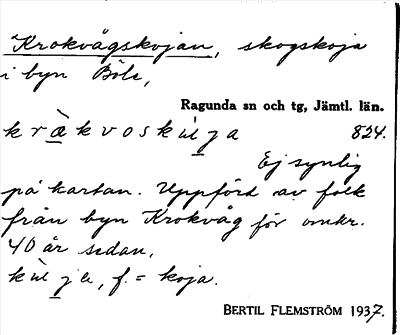 Krokvågskojan, skogskoja
i byn Böle,
Ragunda sn och tg, Jämtl. län.
kræ̀kvoskùlja 824.
Ej synlig
på kartan. Uppförd av folk
från byn Krokvåg för omkr.
40 år sedan.
f. = koja.
BERTIL FLEMSTRÖM 1937.